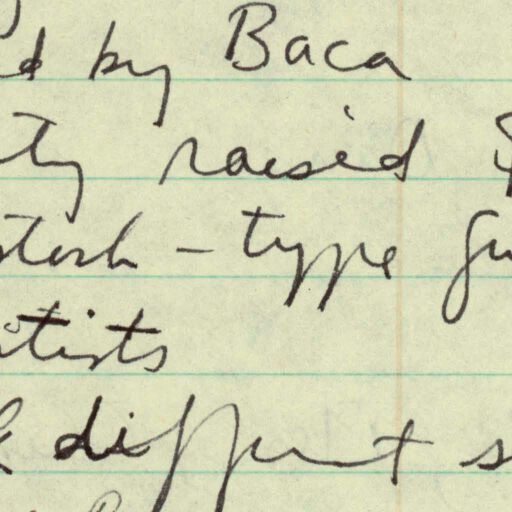 d by Baca
ty raised $
stock - type
tists
different s